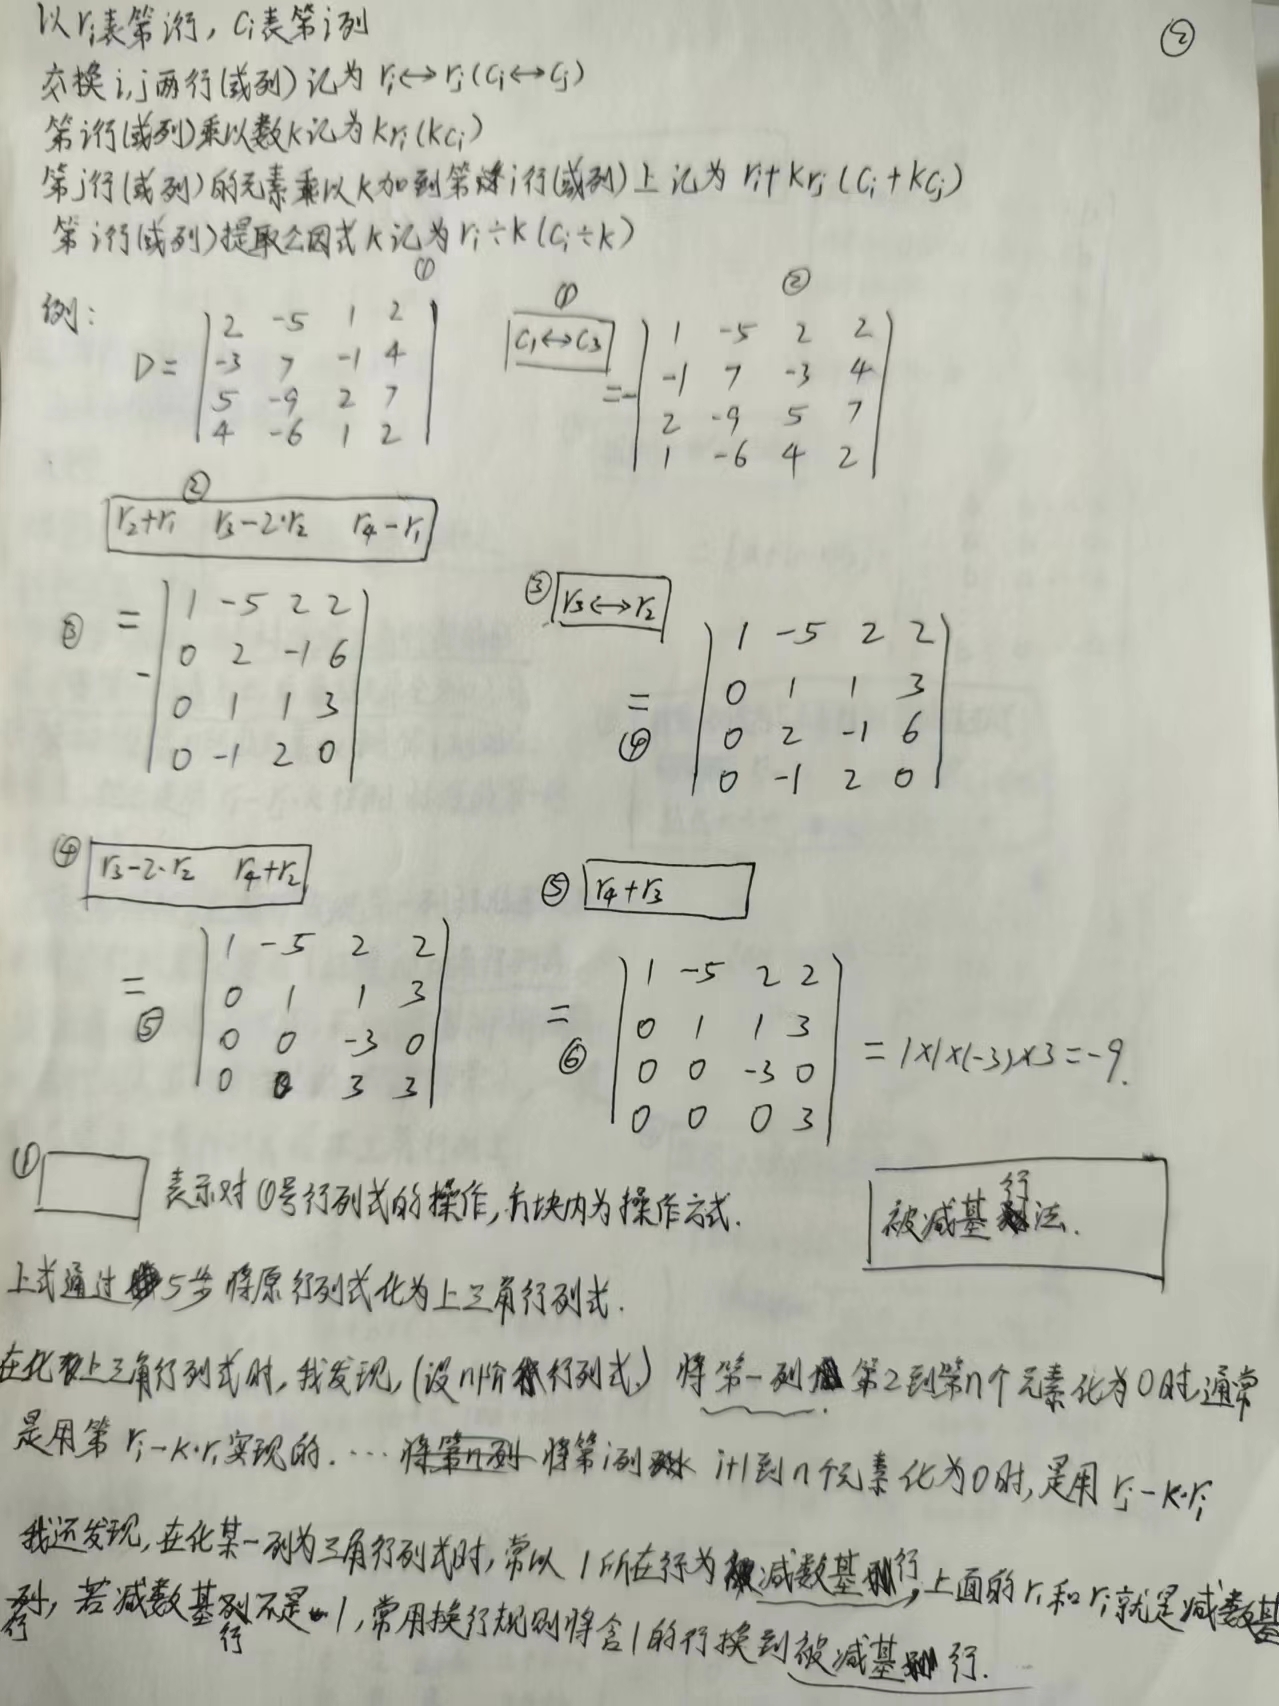 ②
以r_i表第i行，c_i表第i列
交换i,j两行(或列)记为 r_i↔r_j(c_i↔c_j)
第i行(或列)乘以数k记为kr_i(kc_i)
第j行(或列)的元素乘以k加到第i行(或列)上记为 r_i+kr_j(c_i+kc_j)
第i行(或列)提取公因式k记为r_i÷k(c_i÷k)
例：
①
D=
2 -5 1 2
-3 7 -1 4
5 -9 2 7
4 -6 1 2
① c₁↔c₃
②
=-
1 -5 2 2
-1 7 -3 4
2 -9 5 7
1 -6 4 2
② r₂+r₁ r₃-2·r₂ r₄-r₁
③ = -
1 -5 2 2
0 2 -1 6
0 1 1 3
0 -1 2 0
③ r₃↔r₂
= ④
1 -5 2 2
0 1 1 3
0 2 -1 6
0 -1 2 0
④ r₃-2·r₂ r₄+r₂
= ⑤
1 -5 2 2
0 1 1 3
0 0 -3 0
0 0 3 3
⑤ r₄+r₃
= ⑥
1 -5 2 2
0 1 1 3
0 0 -3 0
0 0 0 3
=1×1×(-3)×3=-9.
① 表示对①号行列式的操作,方块内为操作方式.
被减基行法.
上式通过5步将原行列式化为上三角行列式.
在化上三角行列式时,我发现,(设n阶行列式)将第一列第2到第n个元素化为0时,通常
是用第 r_i-k·r₁实现的.…将第n列 将第i列 i+1到n个元素化为0时,是用 r_j-k·r_i
我还发现,在化某一列为三角行列式时,常以1所在行为减数基行,上面的r₁和r_i就是减数基
行,若减数基行不是1,常用换行规则将含1的行换到被减基行.